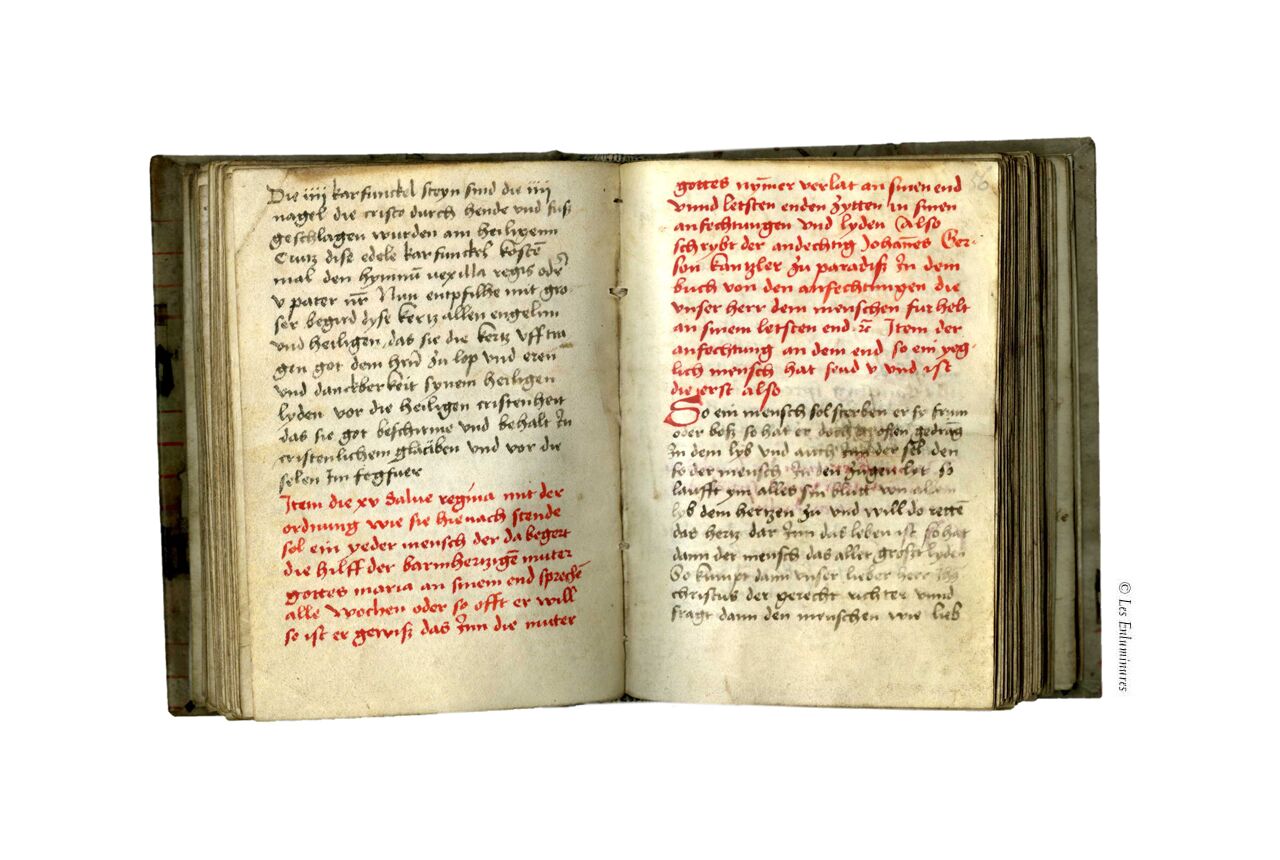 Die iiij karfunckel steyn sind die iiij
nagel die cristo durch hende und fuß
geschlagen wurden am heiligenn
Crutz dise edele karfunckel kosten
mal den hymnū vexilla regis odr̄
v pater nr̄ Nun entpfilhe mit gro-
ser begird dyse kertz allen engelnn
und heiligen, das sie die kertz uff tra
gen got dem hrn̄ zu lop und eren
und danckberkeit synem heiligen
lyden vor die heiligen cristenheit
das sie got beschirme und behalt in
cristenlichem glauben und vor die
selen im fegfuer
Item die xv Salue regina mit der
ordnung wie sie hienach stende
sol ein yeder mensch der da begert
die hilff der barmhertzigē muter
gottes maria an sinem end sprechē
alle wochen oder so offt er will
so ist er gewiß das inn die muter
56
gottes nymer verlat an sinen end
unnd letsten enden zytten in sinen
anfechtungen und lyden Also
schrybt der andechtig Johānes Ger-
son kantzler zu paradiß in dem
buch von den anfechtungen die
unser herr dem menschen fur helt
an sinem letsten end ꝛc Item der
anfechtung an dem end so ein yeg-
lich mensch hat send v und ist
die erst also
So ein mensch sol sterben er sy frum
oder boß so hat er doch großen gedrāg
in dem lyb und auch der sel den
so der mensch in den zugen lyt so
laufft ym alles sin blutt von allem
lyb dem hertzen zu und will do rettē
das hertz dar inn das leben ist so hat
dann der mensch das aller groste lyden
So kumpt dann unser lieber herr
christus der gerecht richter unnd
fragt dann den menschen wie lieb
© Les Enluminures